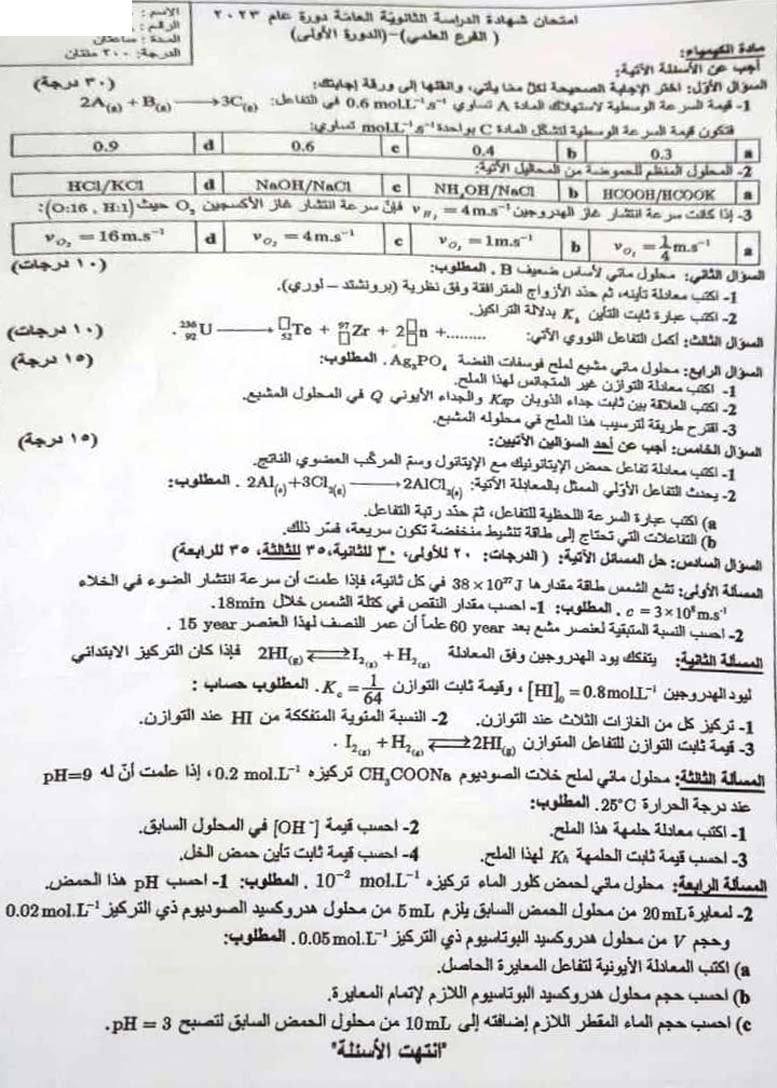 امتحان شهادة الدراسة الثانوية العامة دورة عام ٢٠٢٣
( الفرع العلمي)–(الدورة الأولى)
الاسم :
الرقم :
المدة : ساعتان
الدرجة: ٢٠٠ مئتان
مادة الكيمياء:
أجب عن الأسئلة الآتية:
السؤال الأول: اختر الإجابة الصحيحة لكل مما يأتي، وانقلها إلى ورقة إجابتك: (٣٠ درجة)
1- قيمة السرعة الوسطية لاستهلاك المادة A تساوي 0.6 mol.L⁻¹.s⁻¹ في التفاعل: 2A(g) + B(g) ⟶ 3C(g)
فتكون قيمة السرعة الوسطية لتشكل المادة C بواحدة mol.L⁻¹.s⁻¹ تساوي:
a 0.3 b 0.4 c 0.6 d 0.9
2- المحلول المنظم للحموضة من المحاليل الآتية:
a HCOOH/HCOOK b NH₄OH/NaCl c NaOH/NaCl d HCl/KCl
3- إذا كانت سرعة انتشار غاز الهدروجين v_H₂ = 4 m.s⁻¹ فإن سرعة انتشار غاز الأكسجين O₂ حيث (O:16 , H:1):
a v_O₂ = 1/4 m.s⁻¹ b v_O₂ = 1m.s⁻¹ c v_O₂ = 4m.s⁻¹ d v_O₂ = 16m.s⁻¹
السؤال الثاني: محلول مائي لأساس ضعيف B . المطلوب: (١٠ درجات)
1- اكتب معادلة تأينه، ثم حدد الأزواج المترافقة وفق نظرية (برونشتد – لوري).
2- اكتب عبارة ثابت التأين K_b بدلالة التراكيز.
السؤال الثالث: أكمل التفاعل النووي الآتي: ²³⁵₉₂U ⟶ □₅₂Te + ⁹⁷□Zr + 2□□n +........ . (١٠ درجات)
السؤال الرابع: محلول مائي مشبع لملح فوسفات الفضة Ag₃PO₄ . المطلوب: (١٥ درجة)
1- اكتب معادلة التوازن غير المتجانس لهذا الملح.
2- اكتب العلاقة بين ثابت جداء الذوبان Ksp والجداء الأيوني Q في المحلول المشبع.
3- اقترح طريقة لترسيب هذا الملح في محلوله المشبع.
السؤال الخامس: أجب عن أحد السؤالين الآتيين: (١٥ درجة)
1- اكتب معادلة تفاعل حمض الإيتانوئيك مع الإيتانول وسم المركب العضوي الناتج.
2- يحدث التفاعل الأولي الممثل بالمعادلة الآتية: 2Al(s)+3Cl₂(g) ⟶ 2AlCl₃(s) . المطلوب:
a) اكتب عبارة السرعة اللحظية للتفاعل، ثم حدد رتبة التفاعل.
b) التفاعلات التي تحتاج إلى طاقة تنشيط منخفضة تكون سريعة، فسّر ذلك.
السؤال السادس: حل المسائل الآتية: ( الدرجات: ٢٠ للأولى، ٣٠ للثانية، ٣٥ للثالثة، ٣٥ للرابعة)
المسألة الأولى: تشع الشمس طاقة مقدارها 38×10²⁷ J في كل ثانية، فإذا علمت أن سرعة انتشار الضوء في الخلاء
c = 3×10⁸m.s⁻¹ . المطلوب: 1- احسب مقدار النقص في كتلة الشمس خلال 18min.
2- احسب النسبة المتبقية لعنصر مشع بعد 60 year علماً أن عمر النصف لهذا العنصر 15 year .
المسألة الثانية: يتفكك يود الهدروجين وفق المعادلة 2HI(g) ⇌ I₂(g) + H₂(g) فإذا كان التركيز الابتدائي
ليود الهدروجين [HI]₀ = 0.8mol.L⁻¹ ، وقيمة ثابت التوازن K_c = 1/64 . المطلوب حساب :
1- تركيز كل من الغازات الثلاث عند التوازن. 2- النسبة المئوية المتفككة من HI عند التوازن.
3- قيمة ثابت التوازن للتفاعل المتوازن I₂(g) + H₂(g) ⇌ 2HI(g) .
المسألة الثالثة: محلول مائي لملح خلات الصوديوم CH₃COONa تركيزه 0.2 mol.L⁻¹ ، إذا علمت أنّ له pH=9
عند درجة الحرارة 25°C. المطلوب:
1- اكتب معادلة حلمهة هذا الملح. 2- احسب قيمة [OH⁻] في المحلول السابق.
3- احسب قيمة ثابت الحلمهة Kh لهذا الملح. 4- احسب قيمة ثابت تأين حمض الخل.
المسألة الرابعة: محلول مائي لحمض كلور الماء تركيزه 10⁻² mol.L⁻¹ . المطلوب: 1- احسب pH هذا الحمض.
2- لمعايرة 20mL من محلول الحمض السابق يلزم 5mL من محلول هدروكسيد الصوديوم ذي التركيز 0.02mol.L⁻¹
وحجم V من محلول هدروكسيد البوتاسيوم ذي التركيز 0.05mol.L⁻¹ . المطلوب:
a) اكتب المعادلة الأيونية لتفاعل المعايرة الحاصل.
b) احسب حجم محلول هدروكسيد البوتاسيوم اللازم لإتمام المعايرة.
c) احسب حجم الماء المقطر اللازم إضافته إلى 10mL من محلول الحمض السابق لتصبح pH = 3 .
"انتهت الأسئلة"